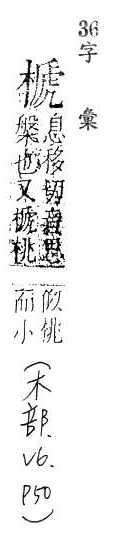 36字彙
榹
息移切音思
槃也又榹桃
似桃
而小
(木部.
V6.
P50)